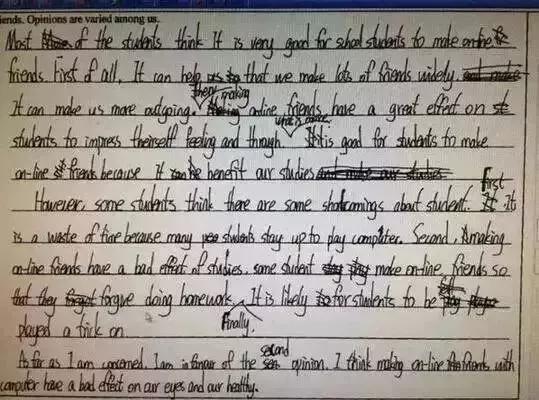 iends. Opinions are varied among us.
Most of the students think It is very good for school students to make on-line
friends. First of all, It can help us that we make lots of friends widely.
It can make us more outgoing. then, making on-line friends have a great effect on
students to impress theirself feeling and through. what's more It is good for students to make
on-line friends because it can benefit our studies
However, some students think there are some shortcomings about student. First It
is a waste of time because many students stay up to play computer. Second, making
on-line friends have a bad effect of studies. some student make on-line friends so
that they forgive doing homework. Finally. It is likely for students to be
played a trick on.
As far as I am concerned, I am in favour of the second opinion. I think making on-line friends with
computer have a bad effect on our eyes and our healthy.